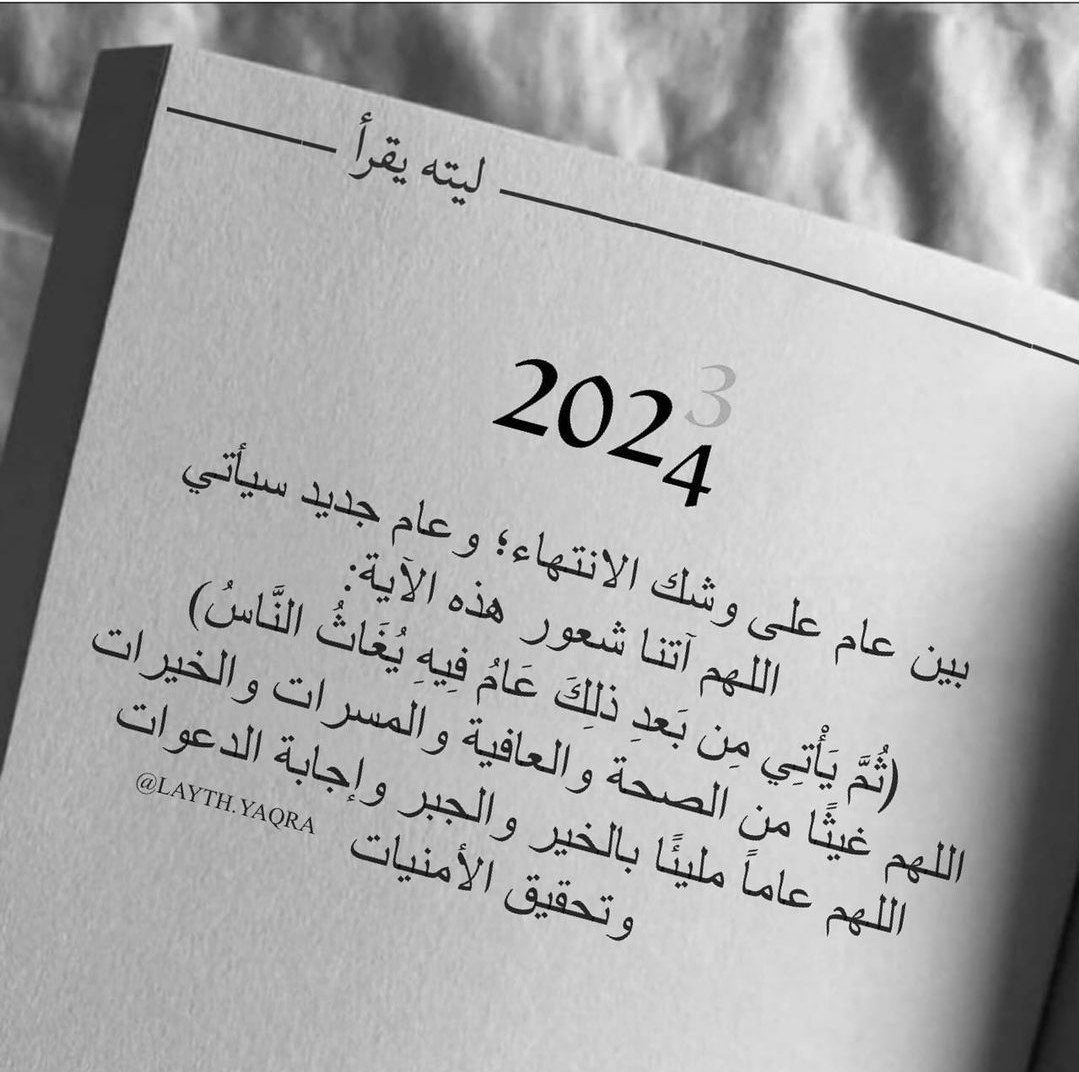 ليته يقرأ
2023
4
بين عام على وشك الانتهاء؛ وعام جديد سيأتي
اللهم آتنا شعور هذه الآية:
(ثُمَّ يَأْتِي مِن بَعدِ ذلِكَ عَامُ فِيهِ يُغَاثُ النَّاسُ)
اللهم غيثًا من الصحة والعافية والمسرات والخيرات
اللهم عاماً مليئًا بالخير والجبر وإجابة الدعوات
وتحقيق الأمنيات
@LAYTH.YAQRA